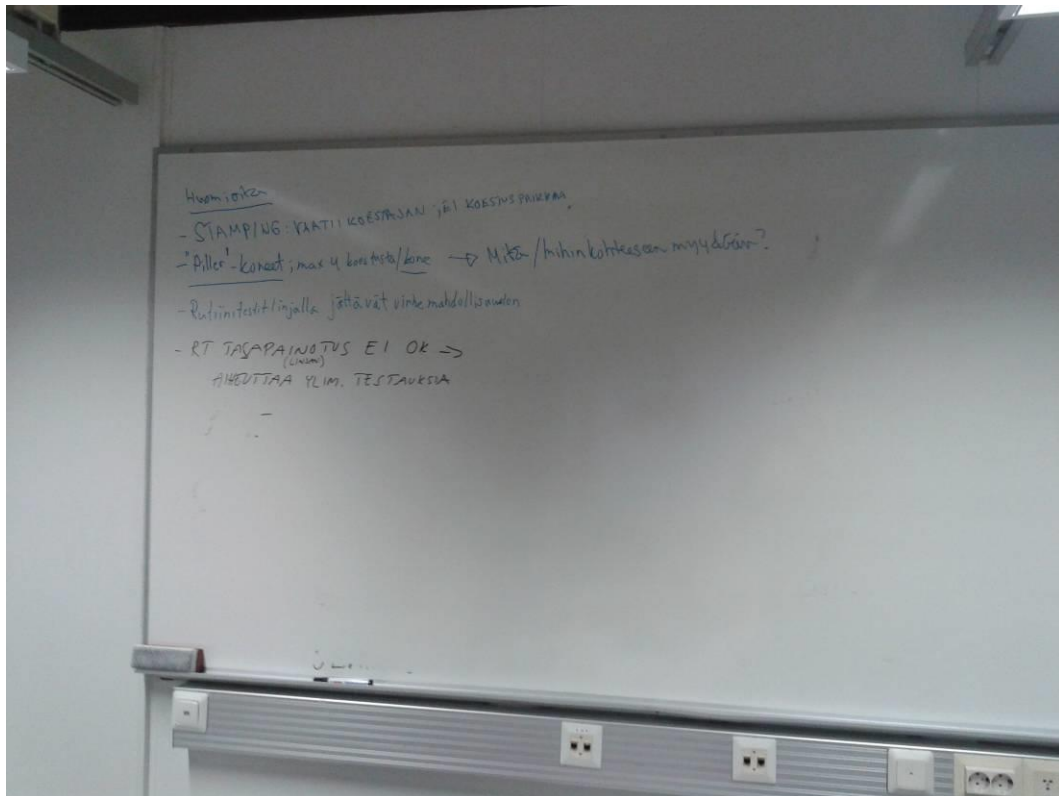 Huomioita
- STAMPING: VAATII KOESTAJAN, EI KOESTUSPAIKKAA
- "Piller"-koneet, max 4 koestusta/kone → Mitä/mihin kohteeseen myydään?
- Rutiinitestit linjalla jättävät virhe mahdollisuuden
- RT TASAPAINOTUS EI OK →
(LINJAN)
AIHEUTTAA YLIM. TESTAUKSIA